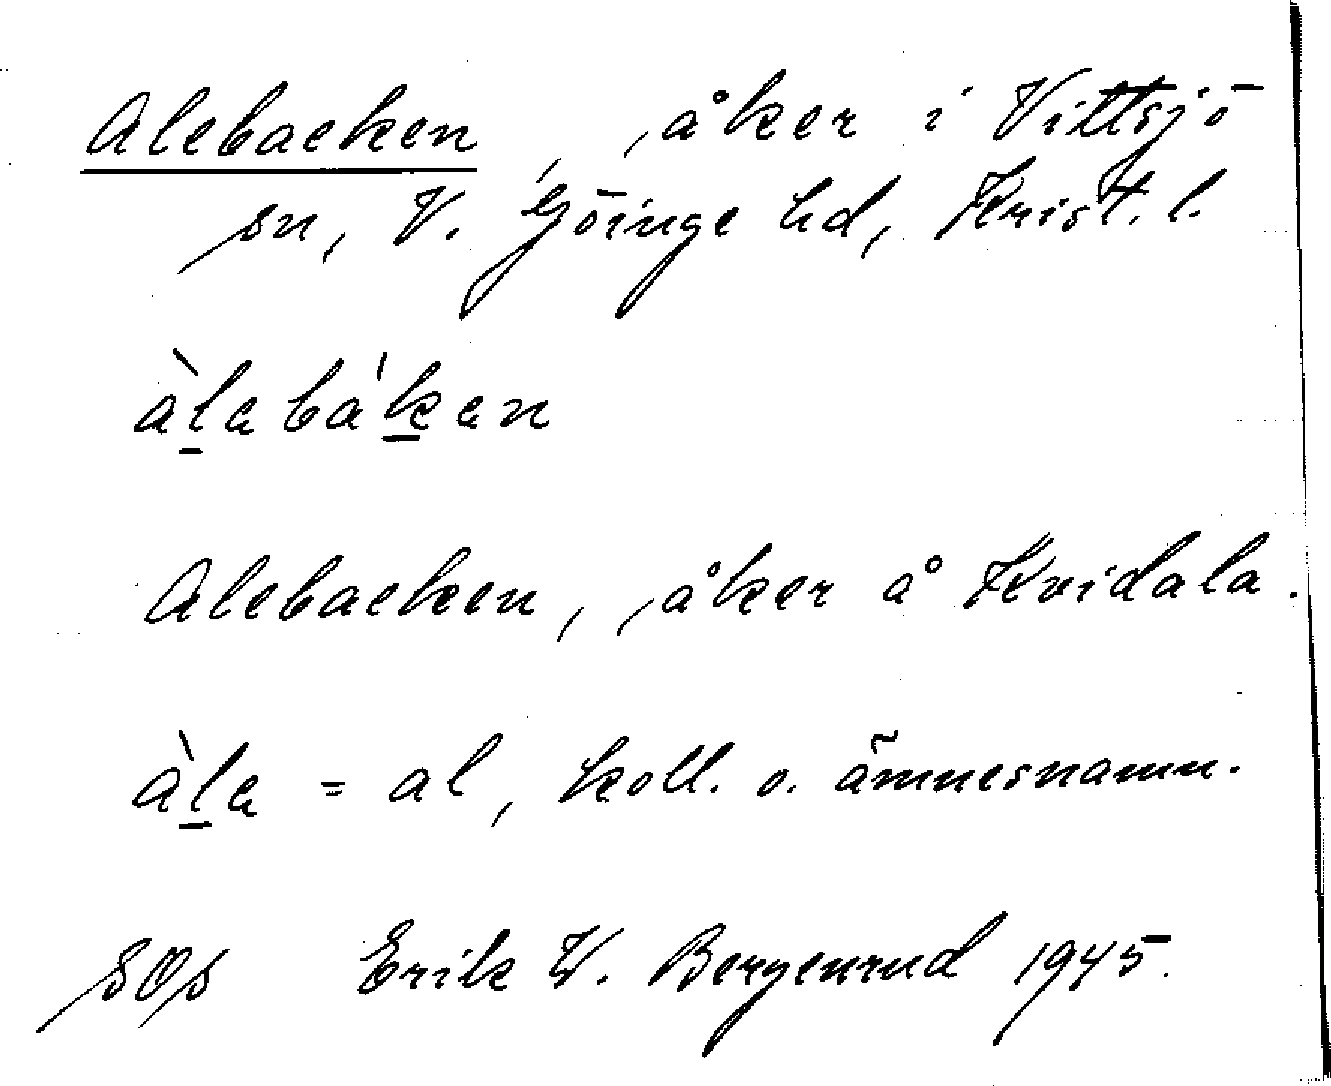 Alebacken, åker i Vittsjö
sn, V. Göinge hd, Krist. l.
àlabáken
Alebacken, åker å Kvidala.
àla = al, koll. o. ämnesnamn.
SOs Erik W. Bergenrud 1945.